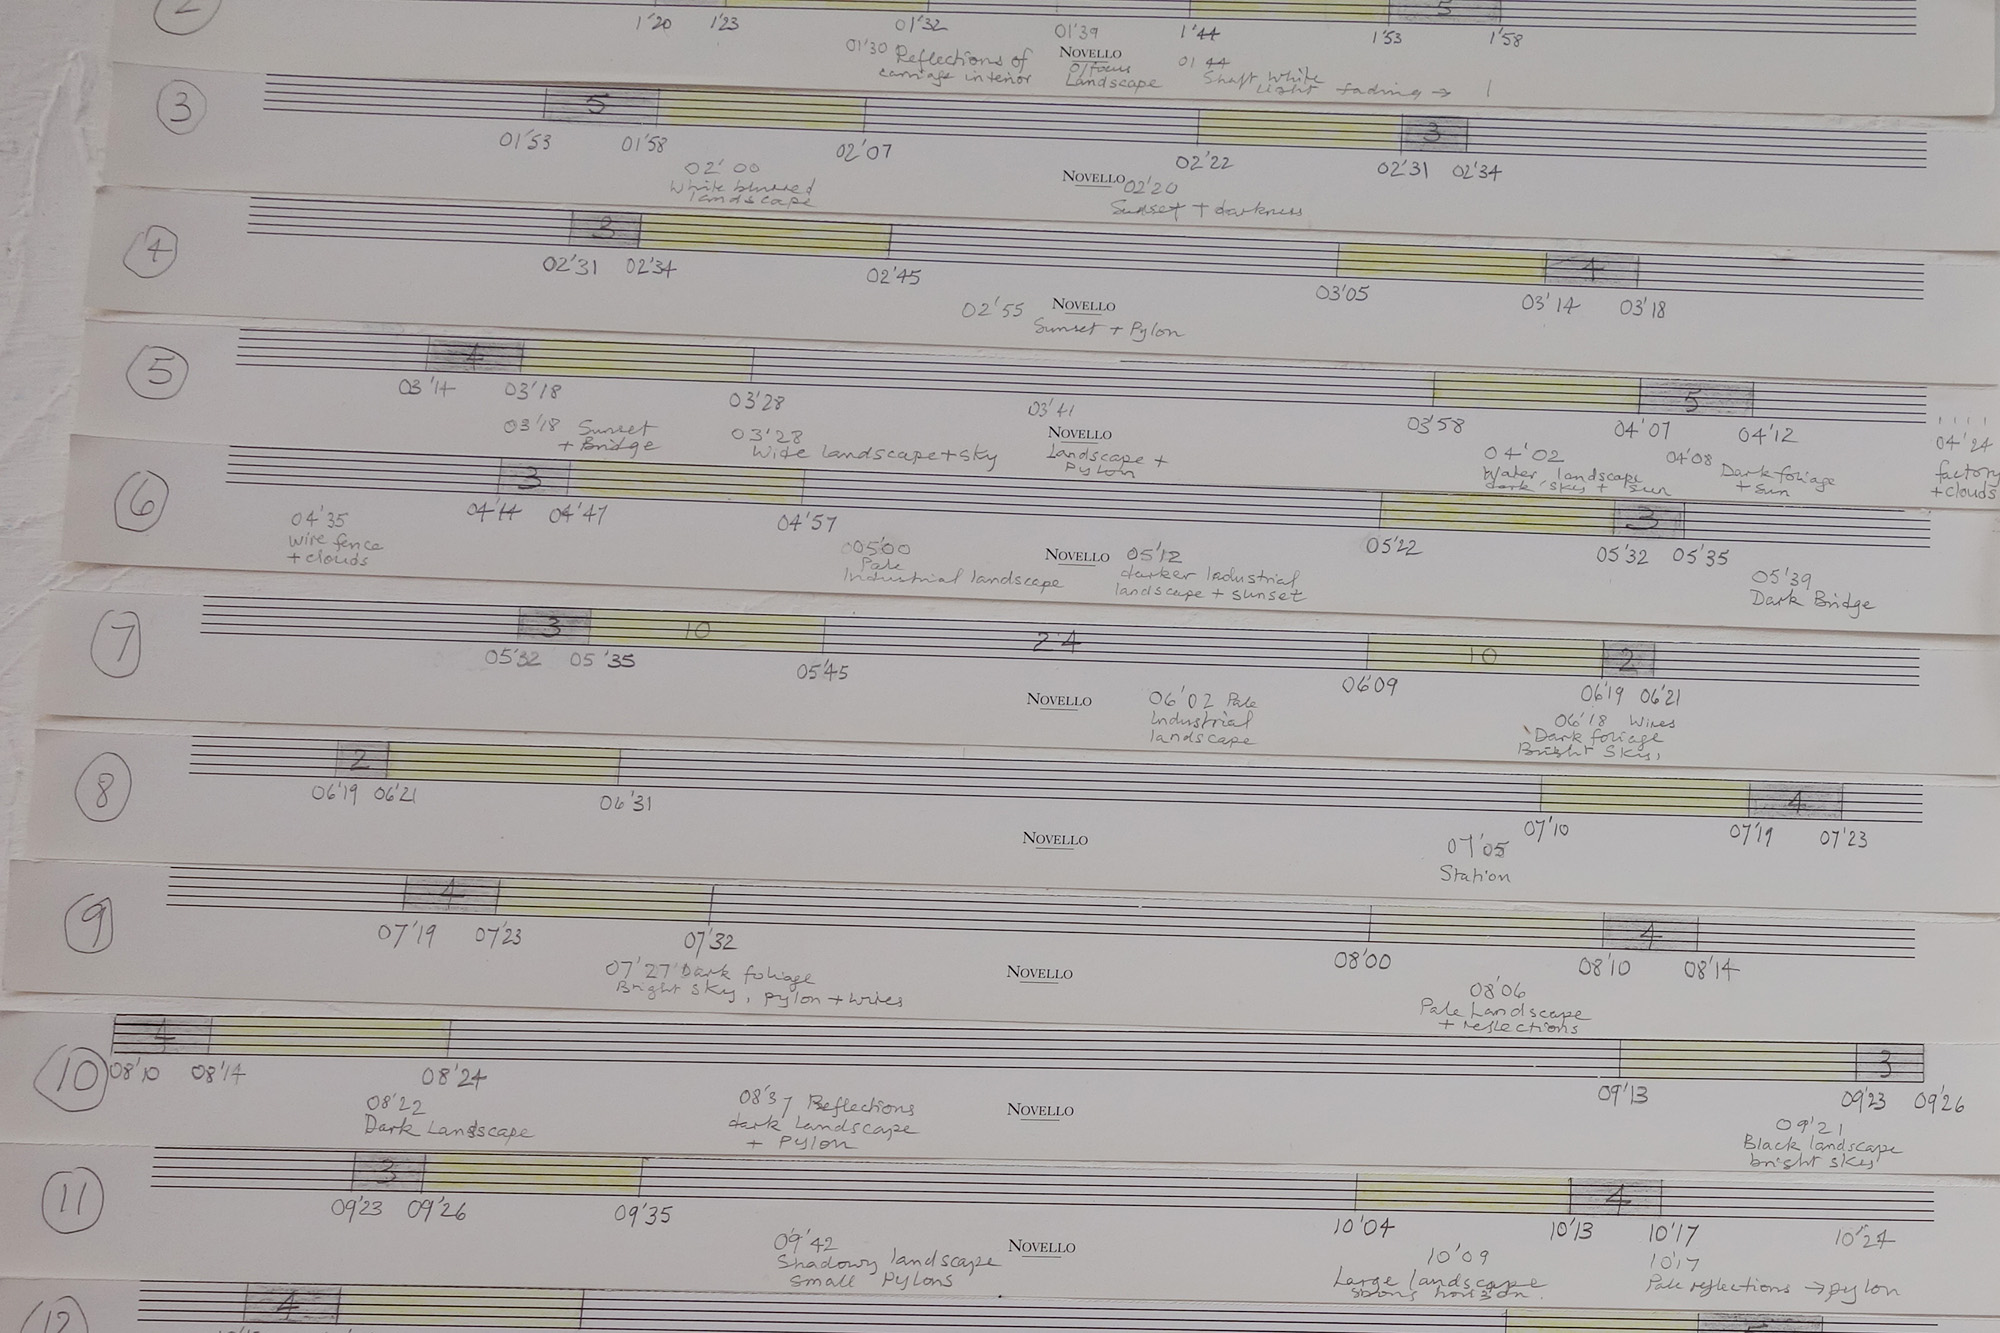 2
5
1'20 1'23 01'32 01'39 1'44 1'53 1'58
01'30 Reflections of
carriage interior
NOVELLO
O/focus
Landscape
01 44 Shaft white
light fading →
3
5 3
01'53 01'58 02'07 02'22 02'31 02'34
02'00
White blurred
landscape
NOVELLO
02'20
Sunset + darkness
4
3 4
02'31 02'34 02'45 03'05 03'14 03'18
02'55
NOVELLO
Sunset + Pylon
5
4 5
03'14 03'18 03'28 03'41 03'58 04'07 04'12
03'18 Sunset
+ Bridge
03'28
Wide landscape + sky
NOVELLO
Landscape +
Pylon
04'02
Water landscape
dark sky + sun
04'08 Dark foliage
+ sun
04'24
factory
+ clouds
6
3 3
04'44 04'47 04'57 05'22 05'32 05'35
04'35
wire fence
+ clouds
05'00
Pale
Industrial landscape
NOVELLO
05'12
darker Industrial
landscape + sunset
05'39
Dark Bridge
7
3 10 24 10 2
05'32 05'35 05'45 06'09 06'19 06'21
NOVELLO
06'02 Pale
Industrial
landscape
06'18 Wires
Dark foliage
Bright sky,
8
2 4
06'19 06'21 06'31 07'10 07'19 07'23
NOVELLO
07'05
Station
9
4 4
07'19 07'23 07'32 08'00 08'10 08'14
07'27 Dark foliage
Bright sky, pylon + wires
NOVELLO
08'06
Pale Landscape
+ reflections
10
4 3
08'10 08'14 08'24 09'13 09'23 09'26
08'22
Dark Landscape
08'37 Reflections
dark landscape
+ Pylon
NOVELLO
09'21
Black landscape
bright sky
11
3 4
09'23 09'26 09'35 10'04 10'13 10'17 10'24
09'42
Shadowy landscape
Small Pylons
NOVELLO
10'09
Large landscape
10'17
Pale reflections → pylon
12
4